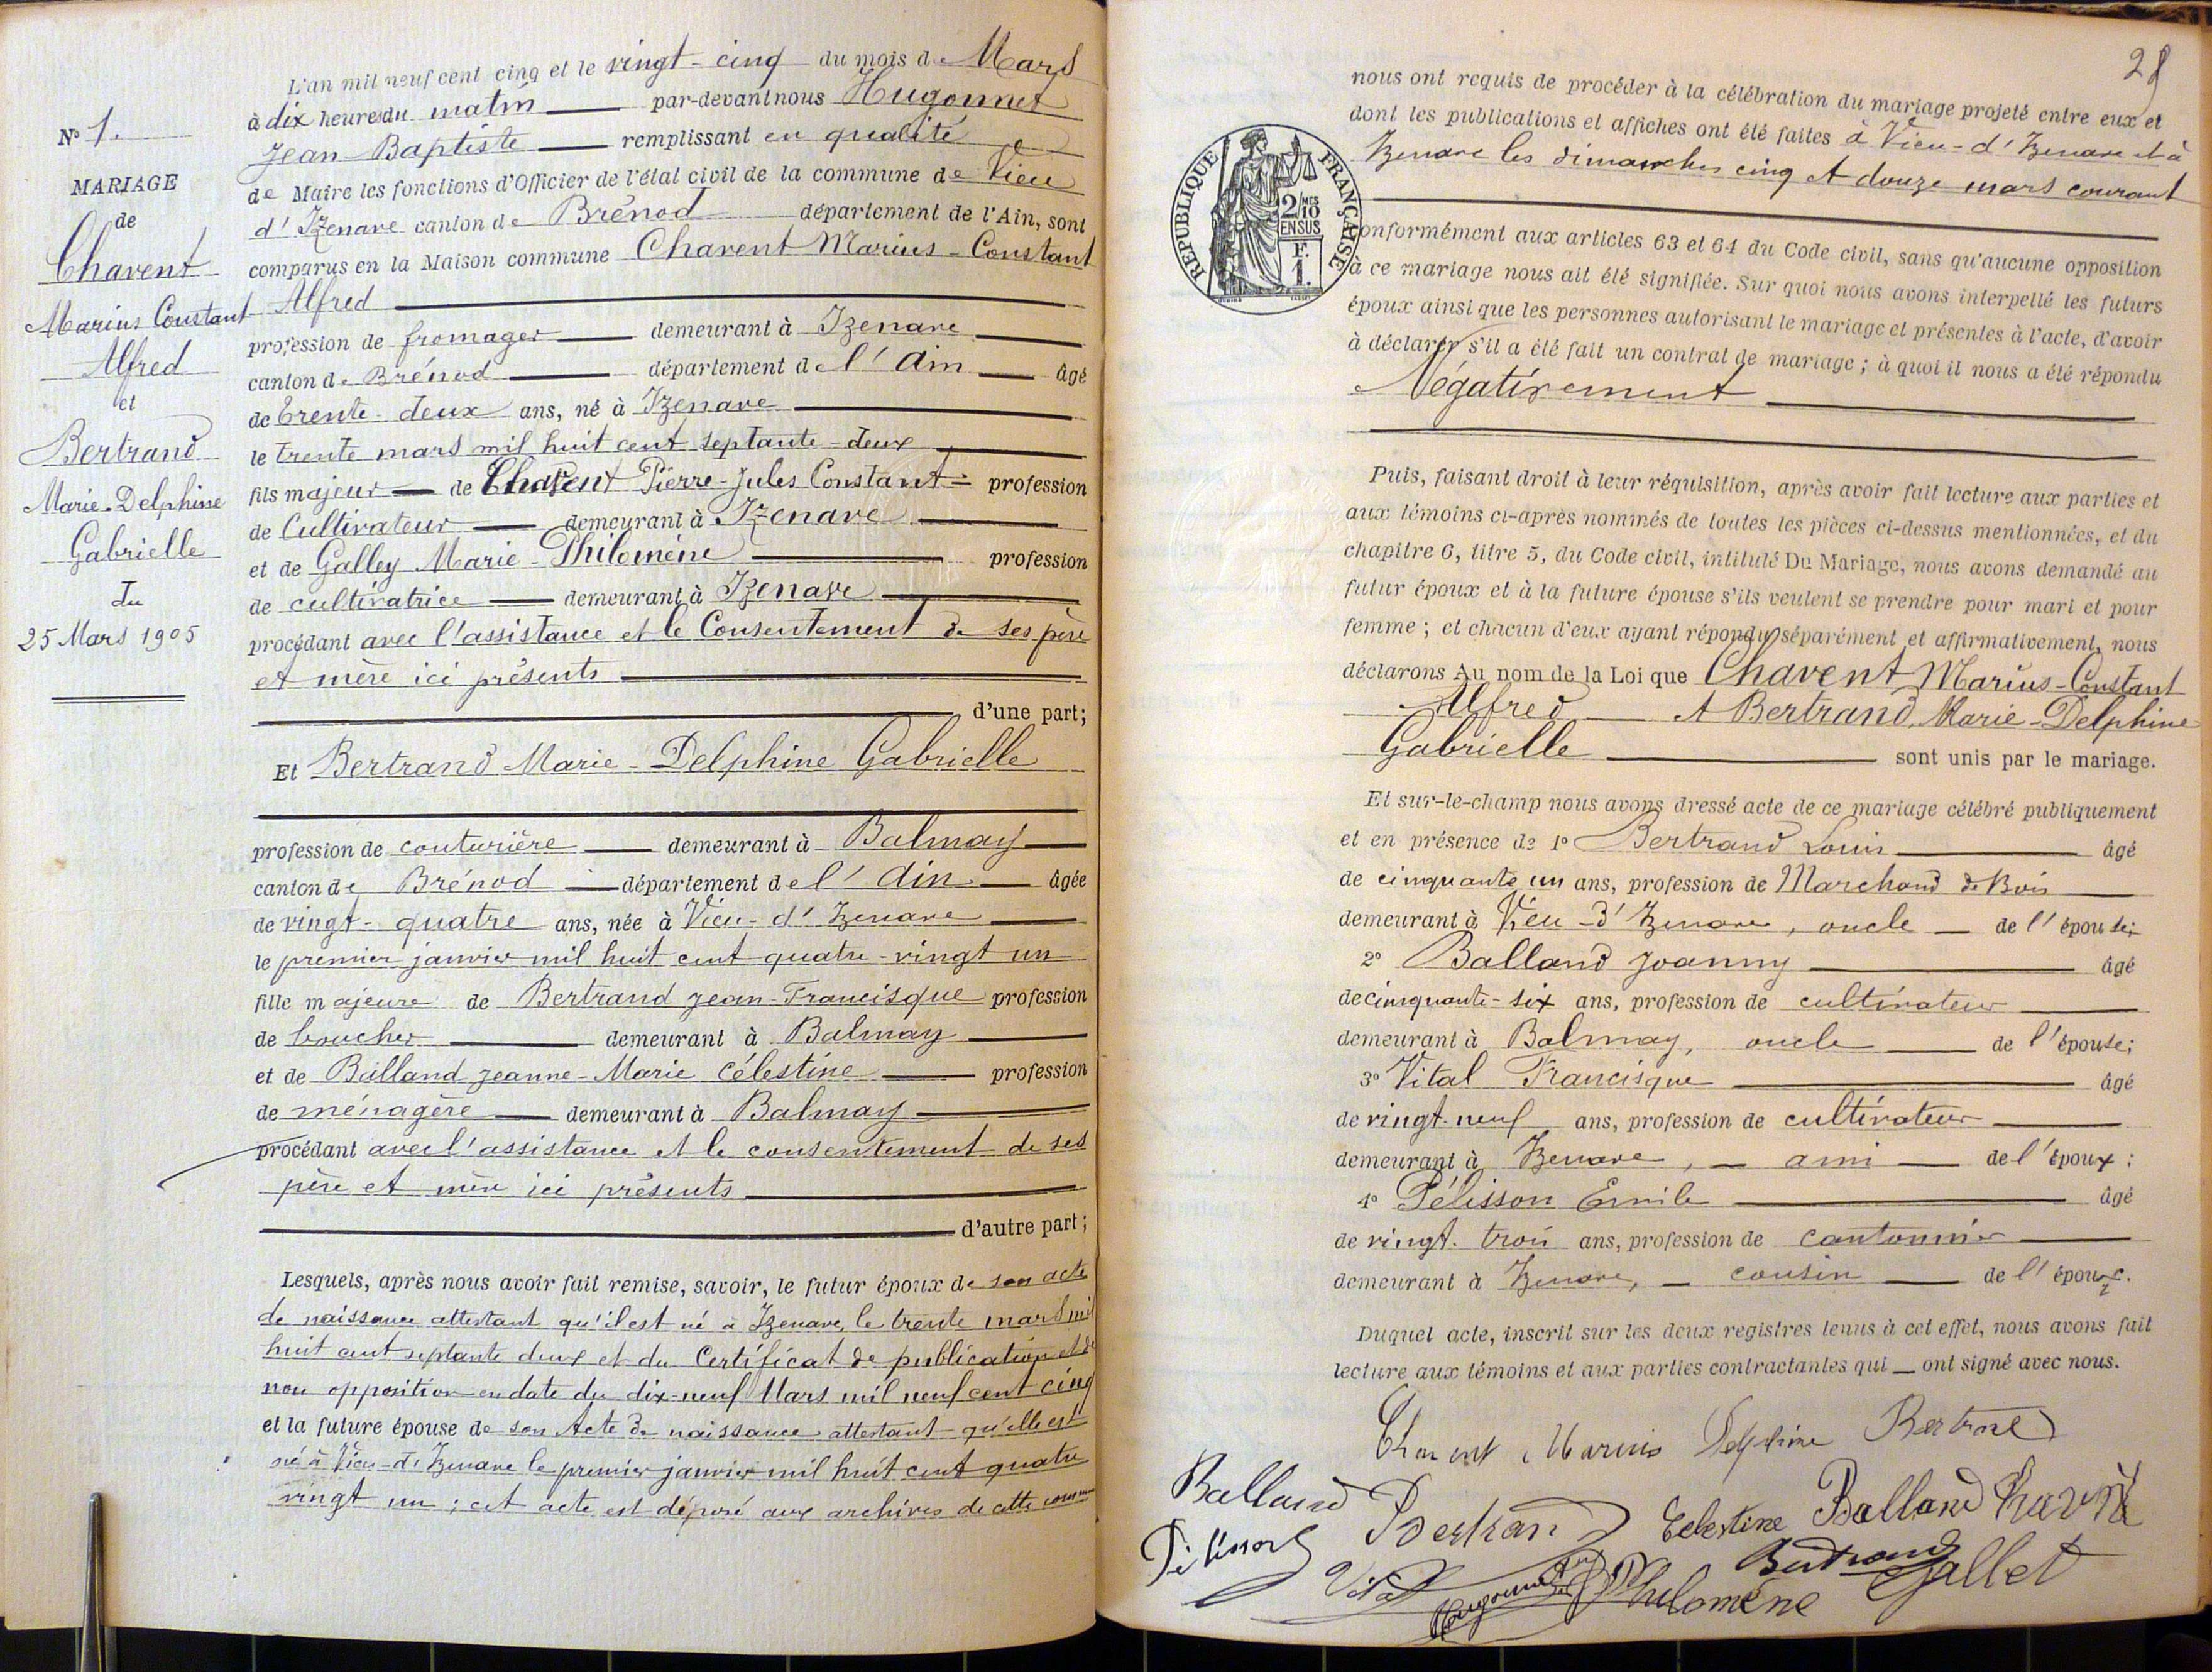 Nº 1.
MARIAGE
de
Chavent
Marius Constant
Alfred
et
Bertrand
Marie-Delphine
Gabrielle
du
25 Mars 1905
L'an mil neuf cent cinq et le vingt-cinq du mois de Mars
à dix heures du matin par-devant nous Hugonnet
Jean-Baptiste remplissant en qualité
de Maire les fonctions d'Officier de l'état civil de la commune de Vieu
d'Izenave canton de Brénod département de l'Ain, sont
comparus en la Maison commune Chavent Marius-Constant
Alfred
profession de fromager demeurant à Izenave
canton de Brénod département de l'Ain âgé
de trente-deux ans, né à Izenave
le trente mars mil huit cent septante-deux
fils majeur de Chavent Pierre-Jules Constant profession
de Cultivateur demeurant à Izenave
et de Galley Marie-Philomène profession
de cultivatrice demeurant à Izenave
procédant avec l'assistance et le Consentement de ses père
et mère ici présents
d'une part;
Et Bertrand Marie-Delphine Gabrielle
profession de couturière demeurant à Balmay
canton de Brénod département de l'Ain âgée
de vingt-quatre ans, née à Vieu-d'Izenave
le premier janvier mil huit cent quatre-vingt un
fille majeure de Bertrand Jean-Francisque profession
de boucher demeurant à Balmay
et de Balland Jeanne-Marie Célestine profession
de ménagère demeurant à Balmay
procédant avec l'assistance et le consentement de ses
père et mère ici présents
d'autre part;
Lesquels, après nous avoir fait remise, savoir, le futur époux de son acte
de naissance attestant qu'il est né à Izenave, le trente mars mil
huit cent septante deux et du Certificat de publication et de
non opposition en date du dix-neuf Mars mil neuf cent cinq
et la future épouse de son Acte de naissance attestant qu'elle est
né à Vieu-d'Izenave le premier janvier mil huit cent quatre
vingt un; cet acte est déposé aux archives de cette commune
28
nous ont requis de procéder à la célébration du mariage projeté entre eux et
dont les publications et affiches ont été faites à Vieu-d'Izenave et à
Izenave les dimanches cinq et douze mars courant
RÉPUBLIQUE FRANÇAISE
2/10 MES
EN SUS
F.
1.
conformément aux articles 63 et 64 du Code civil, sans qu'aucune opposition
à ce mariage nous ait été signifiée. Sur quoi nous avons interpellé les futurs
époux ainsi que les personnes autorisant le mariage et présentes à l'acte, d'avoir
à déclarer s'il a été fait un contrat de mariage; à quoi il nous a été répondu
Négativement
Puis, faisant droit à leur réquisition, après avoir fait lecture aux parties et
aux témoins ci-après nommés de toutes les pièces ci-dessus mentionnées, et du
chapitre 6, titre 5, du Code civil, intitulé Du Mariage, nous avons demandé au
futur époux et à la future épouse s'ils veulent se prendre pour mari et pour
femme; et chacun d'eux ayant répondu séparément et affirmativement, nous
déclarons Au nom de la Loi que Chavent Marius-Constant
Alfred et Bertrand Marie-Delphine
Gabrielle sont unis par le mariage.
Et sur-le-champ nous avons dressé acte de ce mariage célébré publiquement
et en présence de 1º Bertrand Louis âgé
de cinquante un ans, profession de Marchand de Bois
demeurant à Vieu-d'Izenave, oncle de l'épouse;
2º Balland Joanny âgé
de cinquante-six ans, profession de cultivateur
demeurant à Balmay, oncle de l'épouse;
3º Vital Francisque âgé
de vingt-neuf ans, profession de cultivateur
demeurant à Izenave, ami de l'époux;
4º Pélisson Emile âgé
de vingt-trois ans, profession de cantonnier
demeurant à Izenave, cousin de l'époux.
Duquel acte, inscrit sur les deux registres tenus à cet effet, nous avons fait
lecture aux témoins et aux parties contractantes qui ont signé avec nous.
Chavent Marius Delphine Bertrand
Balland Bertrand Celestine Balland Chavent
Pélisson Vital Hugonnet Bertrand
Philomène Gallet